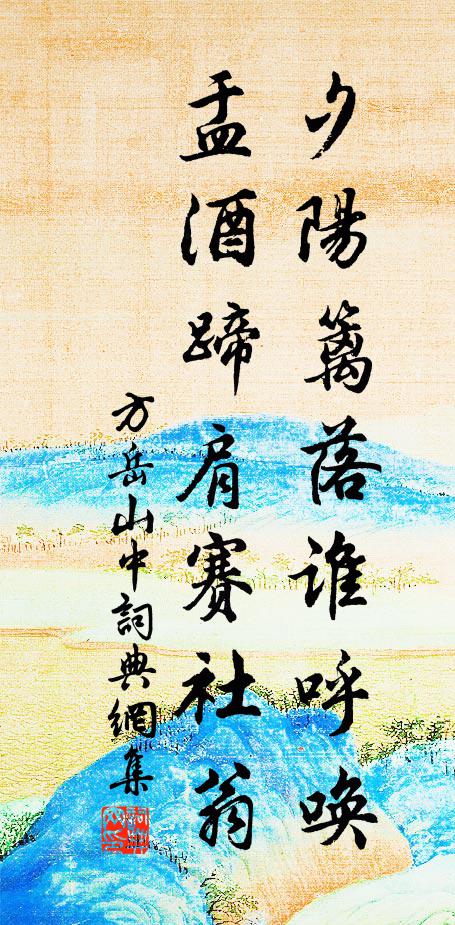 夕陽籬落誰呼喚
盂酒蹄肩賽社翁
方岳山中詞典網集